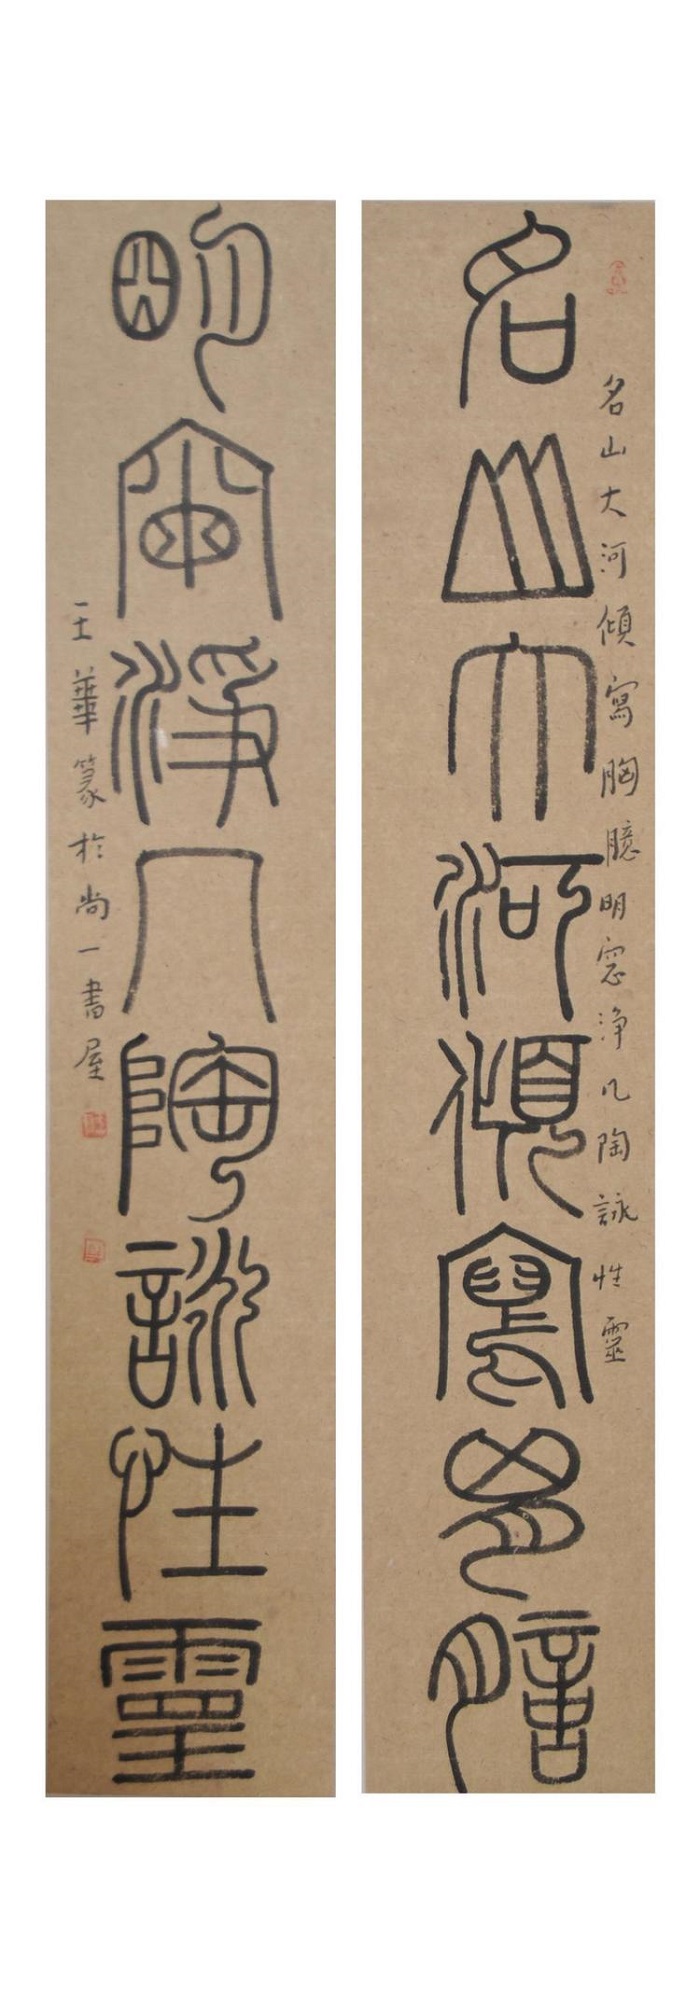 名山大河傾寫匈臆
名山大河傾寫胸臆明窓淨几陶詠性靈
明窗淨几陶詠性靈
王華篆於尚一書屋